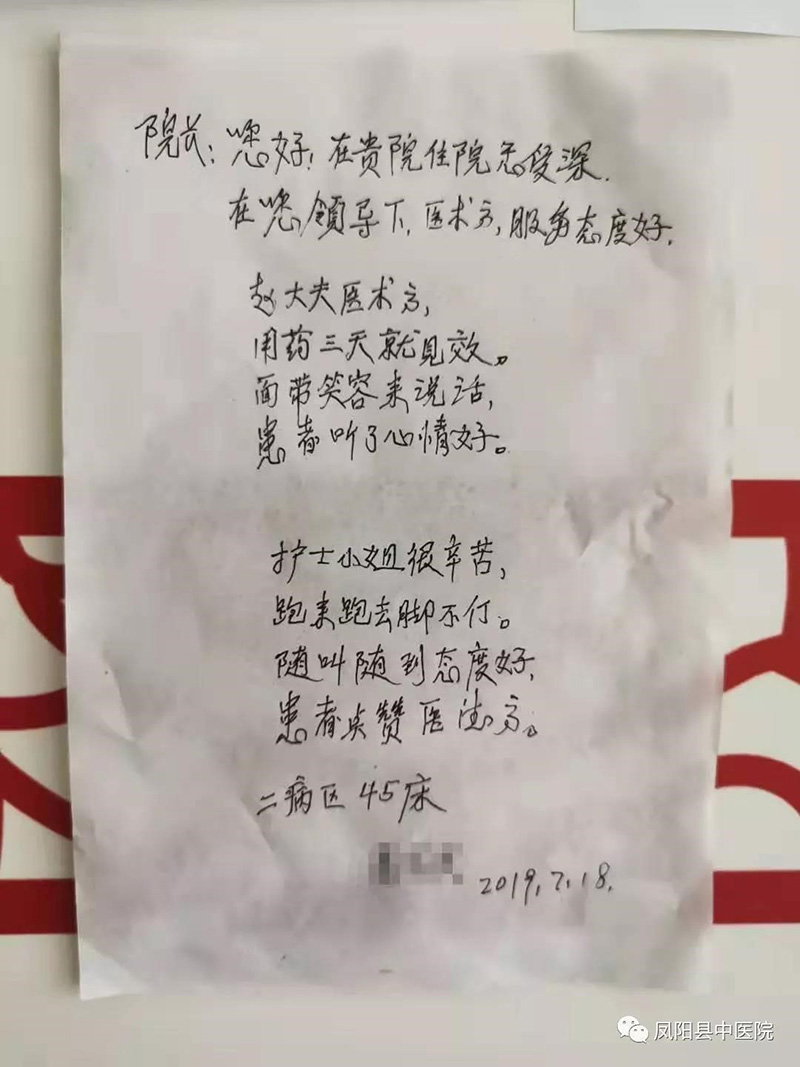 院长：您好！在贵院住院感受深.
在您领导下，医术高，服务态度好.
赵大夫医术高，
用药三天就见效。
面带笑容来说话，
患者听了心情好。
护士小姐很辛苦，
跑来跑去脚不停。
随叫随到态度好，
患者点赞医德高。
二病区 45床
2019.7.18.
凤阳县中医院